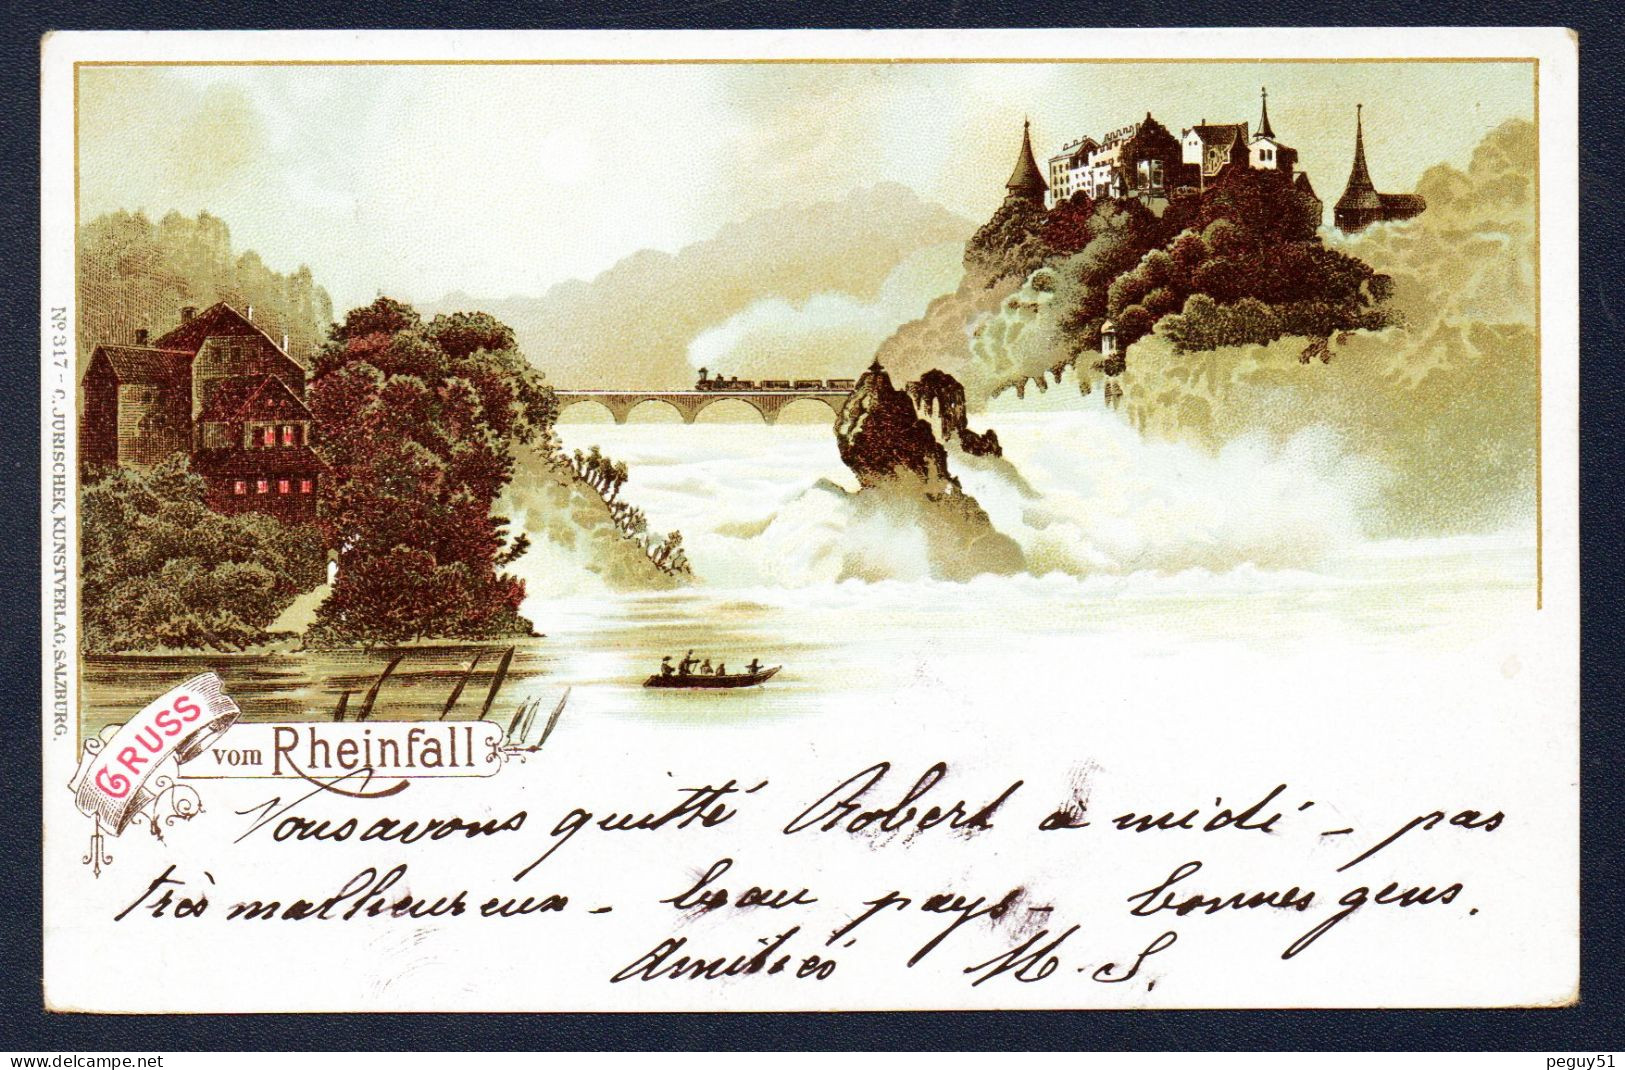 Nº 317 - C. JURISCHEK, KUNSTVERLAG, SALZBURG.
GRUSS
vom Rheinfall
Nous avons quitté Robert à midi - pas
très malheureux - beau pays - bonnes gens.
Amitiés M. S.
peguy51